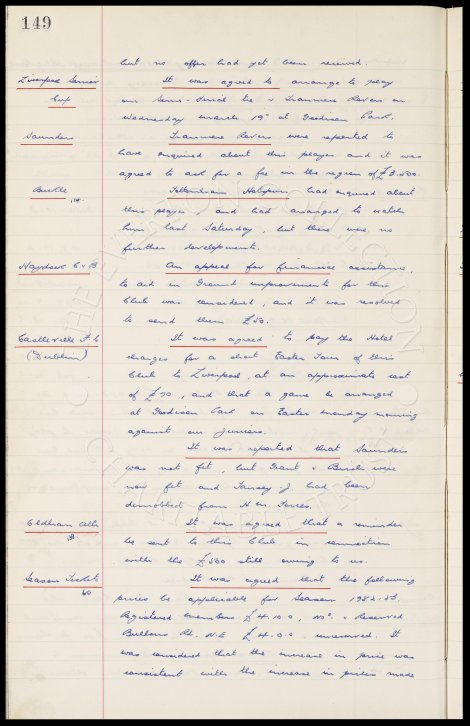 149
but no offer had yet been received.
Liverpool Senior It was agreed to arrange to play
Cup our Semi-Final tie v Tranmere Rovers on
Wednesday March 19th at Goodison Park.
Saunders Tranmere Rovers were reported to
have enquired about this player and it was
agreed to ask for a fee in the region of £3,500.
Buckle Tottenham Hotspur had enquired about
this player and had arranged to watch
him last Saturday, but there were no
further developments.
Haydock C & B An appeal for financial assistance,
to aid in Ground improvements for this
Club was considered, and it was resolved
to send them £50.
Castleville F.C It was agreed to pay the Hotel
(Dublin) charges for a short Easter Tour of this
Club to Liverpool, at an approximate cost
of £70, and that a game be arranged
at Goodison Park on Easter Monday morning
against our juniors.
It was reported that Saunders
was not fit, but Grant & were
now fit and Tansey J. had been
demobbed from H.M. Forces.
Oldham Ath. It was agreed that a reminder
be sent to this Club in connection
with the £500 still owing to us.
Season Tickets It was agreed that the following
prices be applicable for Season 1952-53.
Registered members £4.10.0, & Reserved
Bullens Rd. N.E £4.0.0. unreserved. It
was considered that the increase in price was
consistent with the increase in prices made